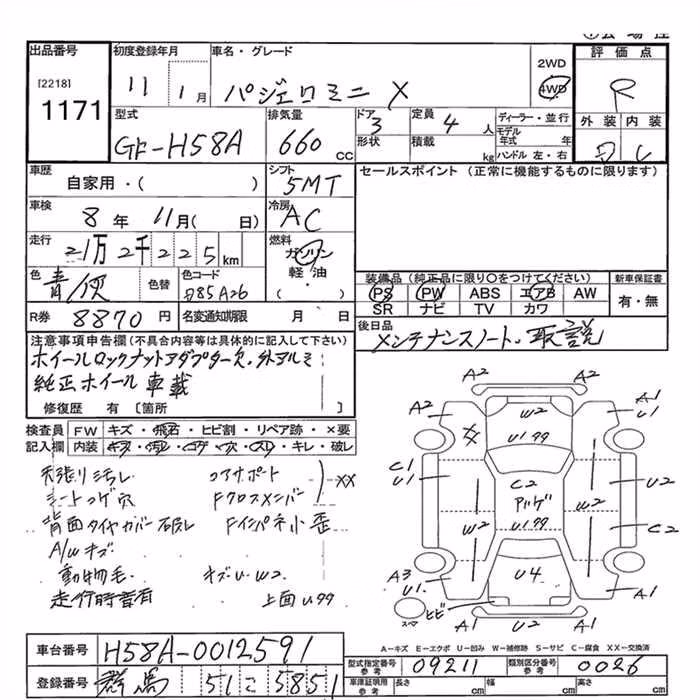 出品番号
[2218]
1171
初度登録年月
11 1月
車名・グレード
パジェロミニ X
2WD
4WD
評価点
R
型式
GF-H58A
排気量
660 CC
ドア 3
形状
定員 4 人
積載 kg
ディーラー・並行
モデル年式 年
ハンドル 左・右
外装 内装
車歴
自家用・( )
シフト
5MT
セールスポイント (正常に機能するものに限ります)
車検
8年 11月( 日)
冷房
AC
走行
21万2千225 km
燃料
ガソリン
軽油
( )
色 青/灰
色替
色コード
装備品 (純正品に限り○をつけてください)
PS PW ABS エアB AW
SR ナビ TV カワ
新車保証書
有・無
R券 8870円
名変通知期限 月 日
後日品
メンテナンスノート・取説
注意事項申告欄(不具合内容等は具体的に記入して下さい)
ホイールロックナットアダプター欠・外アルミ
純正ホイール 車載
修復歴 有 [箇所 ]
検査員 FW キズ・飛石・ヒビ割・リペア跡・×要
記入欄 内装 キズ・汚レ・コゲ・穴・スレ・キレ・破レ
天張り汚レ コアサポート
XX
シートコゲ穴 Fクロスメンバー
背面タイヤカバー破レ Fインパネ小歪
A/Wキズ
動物毛 キズU.W2
走行時異音 上面U99
A2 A2
A2 A1
W2 U1
XX U99
C1 C2 U2
U1 アバゲ
W2 U99 W2 C2
A3 U4
U1
ヒビ
スペア A1 U2 A1 A1
A-キズ E-エクボ U-凹み W-補修跡 S-サビ C-腐食 XX-交換済
車台番号 H58A-0012591
型式指定番号 参考 09211
類別区分番号 参考 0026
登録番号 群馬 51 こ 5851
車庫証明用 参考 長さ cm 幅 cm 高さ cm